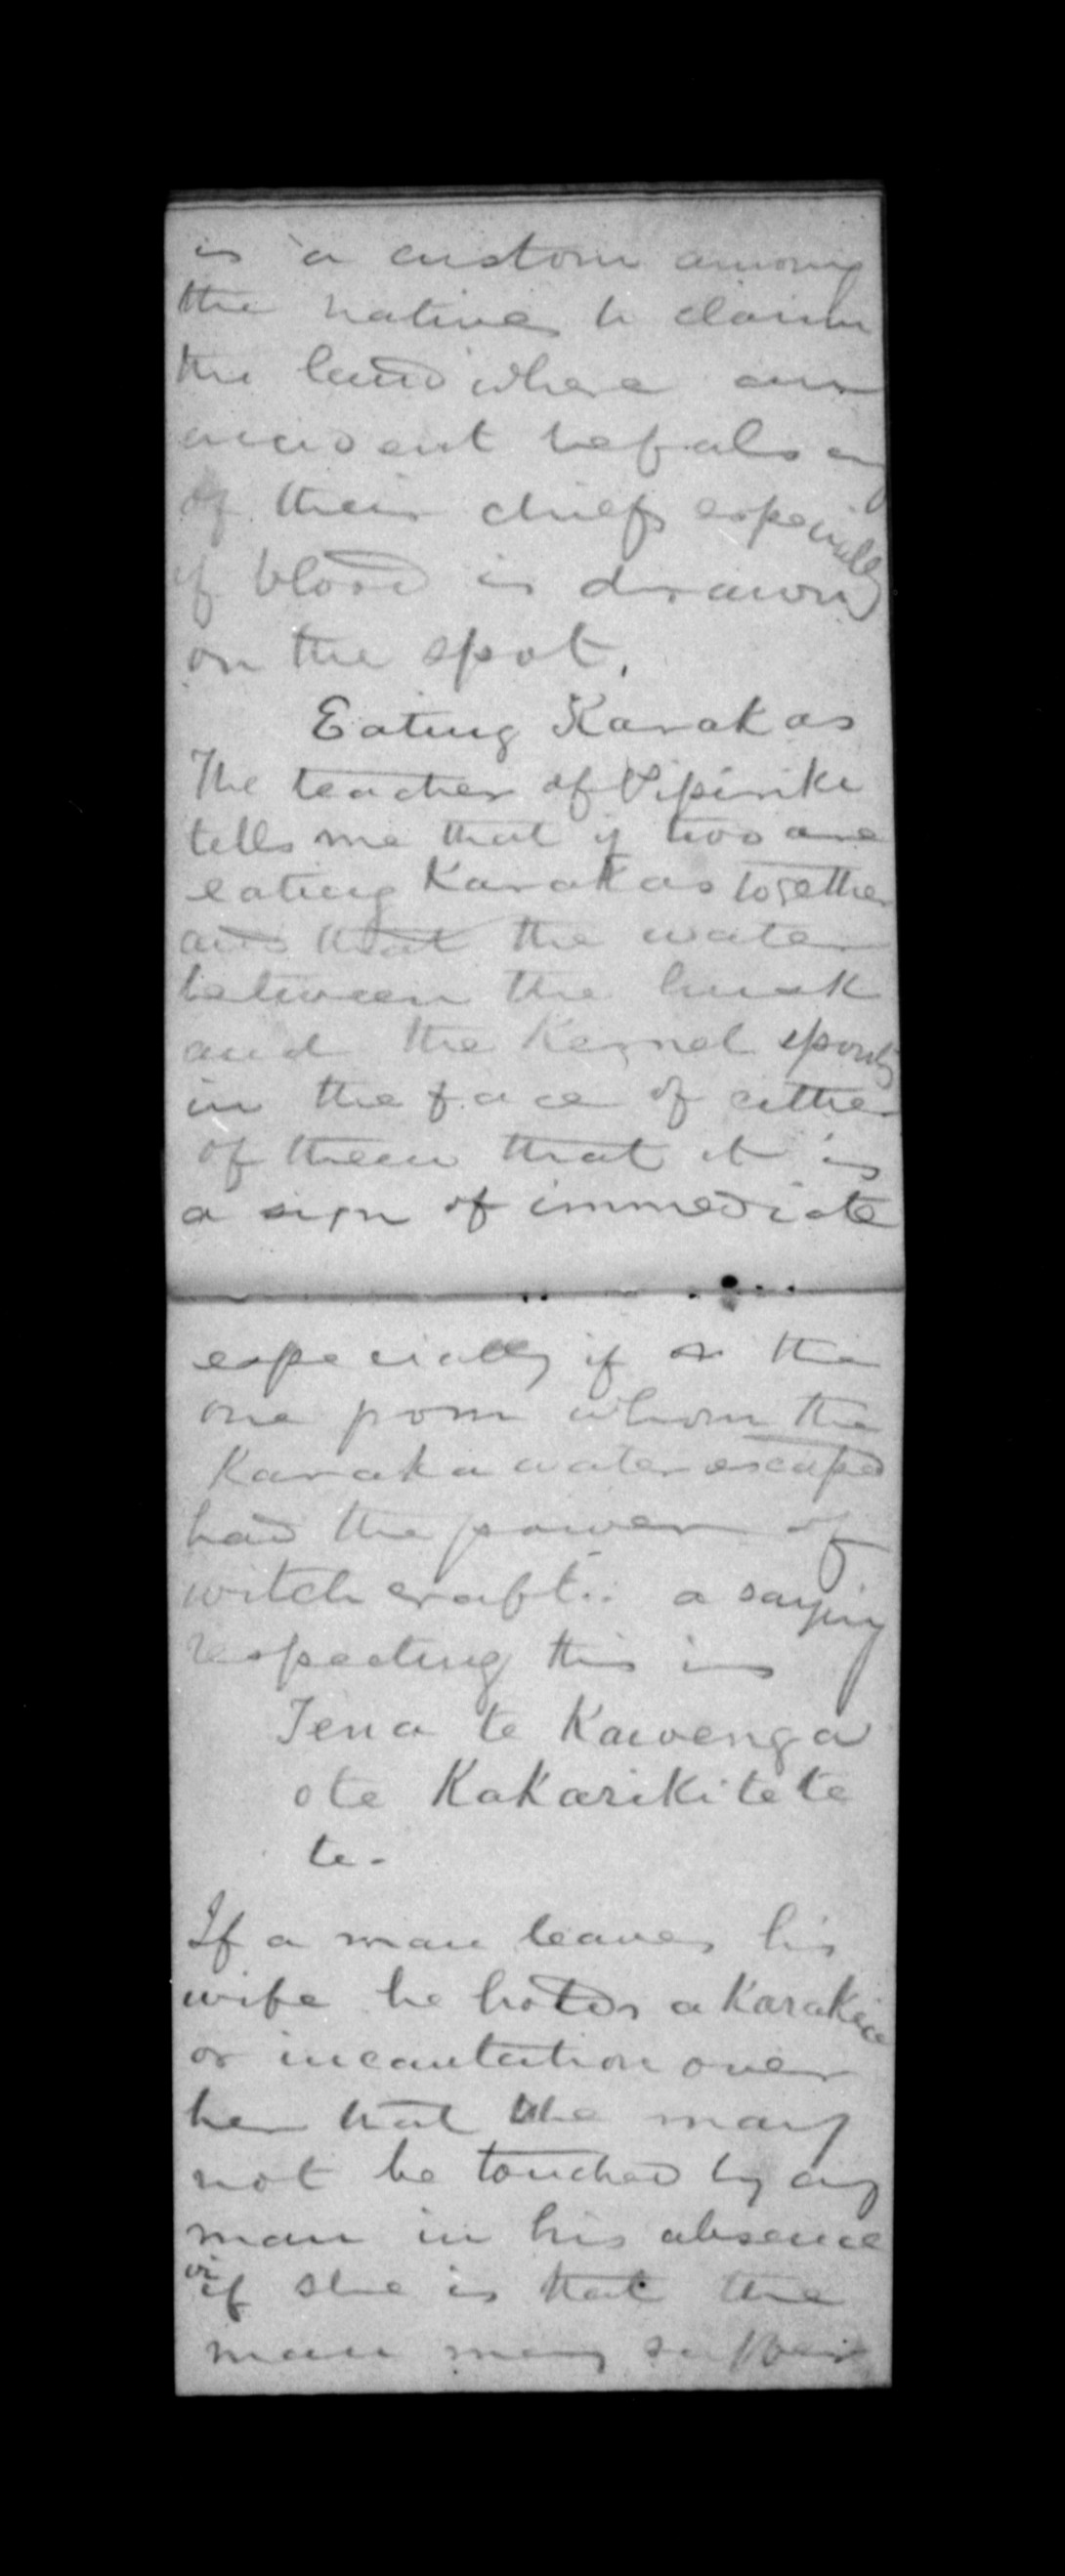 is a custom among
the natives to claim
the land where an
accident befals any
of their chiefs especially
if blood is drawn
on the spot.
Eating Karakas
The teacher of Pipiriki
tells me that if two are
eating Karakas together
and that the water
between the husk
and the Kernel spouts
in the face of either
of them that it is
a sign of immediate
especially if the
one from whom the
Karaka water escaped
had the power of
witchcraft.. a saying
respecting this is
Tena te Kawenga
o te Kakarikitete
te-
If a man leaves his
wife he holds a Karakia
or incantation over
her that she may
not be touched by any
man in his absence
or if she is that the
man may suffer